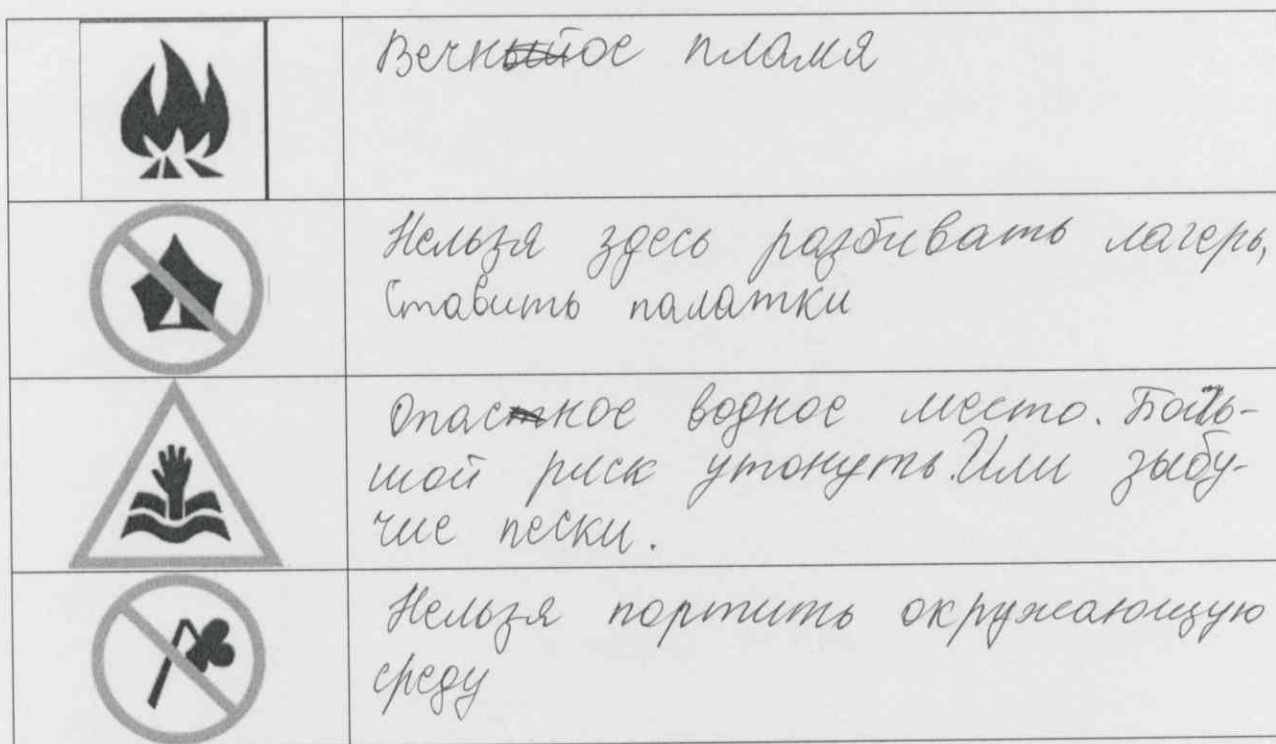 Вечное пламя
Нельзя здесь разбивать лагерь,
Ставить палатки
Опасное водное место. Боль-
шой риск утонуть. Или зыбу-
чие пески.
Нельзя портить окружающую
среду